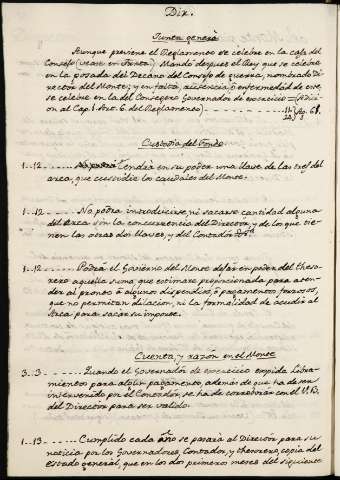 Dix.
Junta general
Aunque previene el Reglamento se celebre en la casa del
Consejo (vease en Junta) Mandó despues el Rey que se celebre
en la posada del Decano del Consejo de guerra, nombrado Di-
rector del Monte; y en falta, ausencia, ó enfermedad de este,
se celebre en la del Consegero Governador de exercicio = (Adicion
al Cap. 1. Art. 6. del Reglamento)
Custodia del Fondo.
1..12.. tendra en su poder una llave de las tres del
arca, que custodie los caudales del Monte.
1..12 No podra introducirse, ni sacarse cantidad alguna
del Arca sin la concurrencia del Director, y de los que tie-
nen las otras dos llaves, y del Contador
1..12 Podrá el Govierno del Monte dejar en poder del theso-
rero aquella suma, que estimare proporcionada para aten-
der al pronto á algunos dispendios, ó pagamentos forzosos,
que no permitan dilacion, ni la formalidad de acudir al
Arca para sacar su importe.
Cuenta, y razon en el Monte
3..3 Quando el Governador de exercicio expida Libra-
mientos para algun pagamento, además de que ha de ser
intervenido por el Contador, se ha de corroborar con el V.B.
del Director para ser valido.
1..13 Cumplido cada año se pasará al Director para su
noticia por los Governadores, Contador, y thesorero, copia del
estado general, que en los dos primeros meses del siguiente